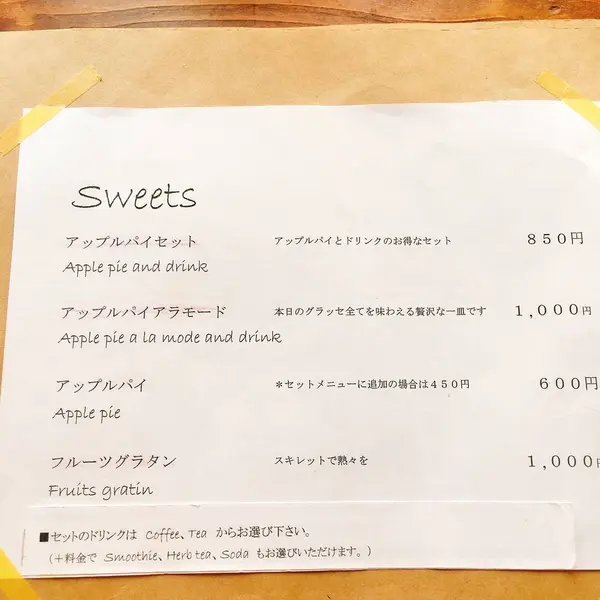 Sweets
アップルパイセット アップルパイとドリンクのお得なセット ８５０円
Apple pie and drink
アップルパイアラモード 本日のグラッセ全てを味わえる贅沢な一皿です １,０００円
Apple pie a la mode and drink
アップルパイ ＊セットメニューに追加の場合は４５０円 ６００円
Apple pie
フルーツグラタン スキレットで熟々を １,０００円
Fruits gratin
■セットのドリンクは Coffee、Tea からお選び下さい。
（＋料金で Smoothie、Herb tea、Soda もお選びいただけます。）